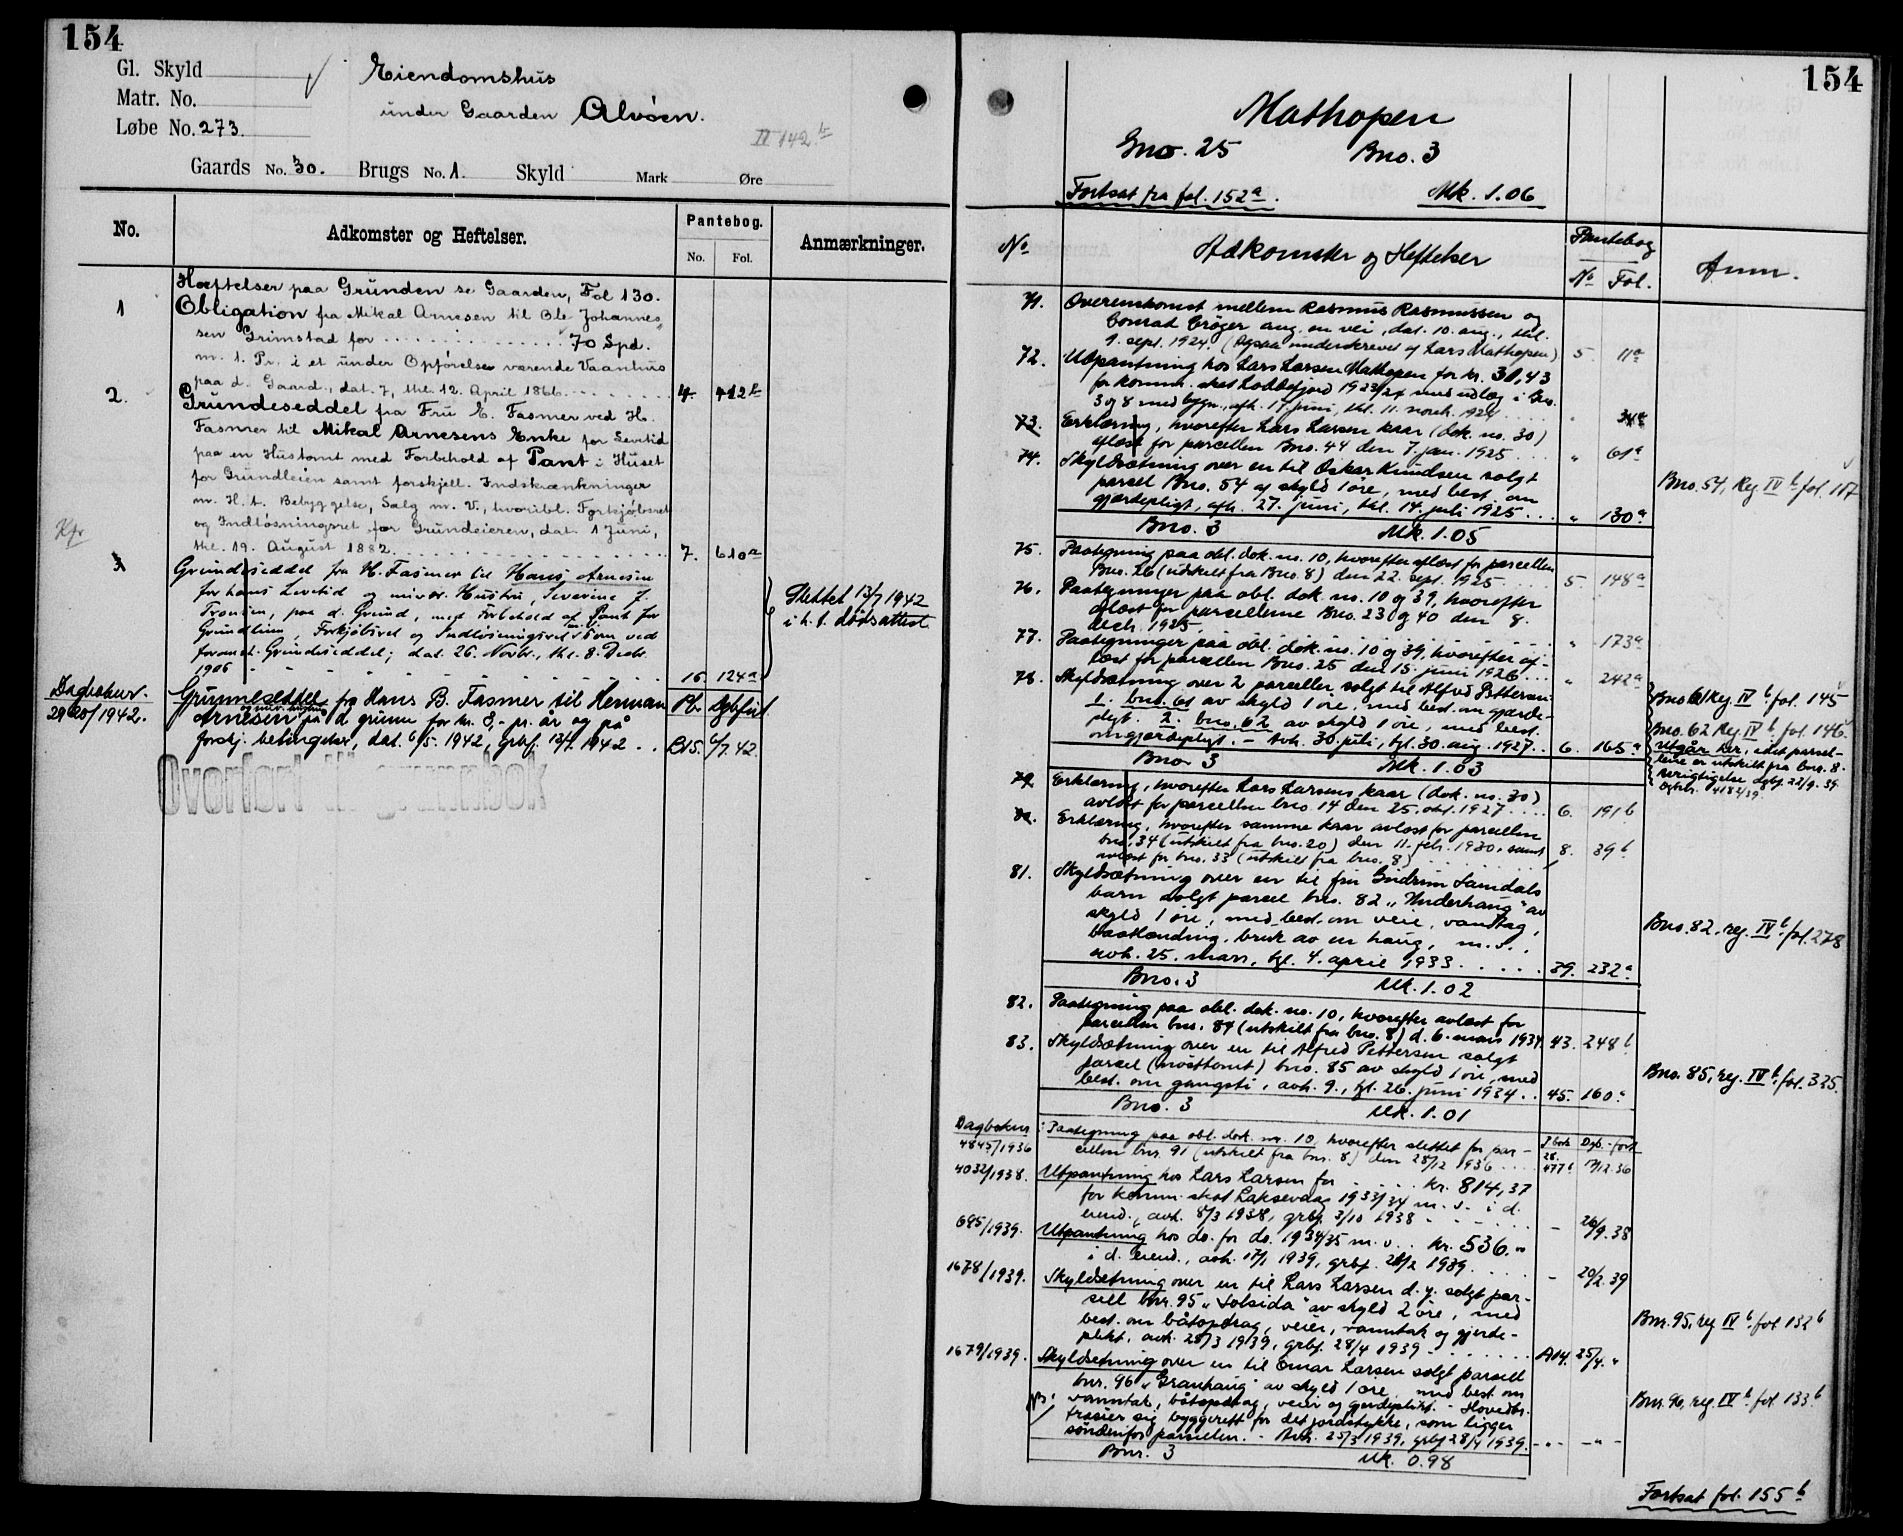 154
Gl. Skyld
Matr. No.
Løbe No. 273.
Eiendomshus
under Gaarden Alvøen.
IV 142 b
Gaards No. 30. Brugs No. 1. Skyld Mark Øre
No. Adkomster og Heftelser. Pantebog. Anmærkninger.
No. Fol.
Hæftelser paa Grunden se Gaarden, Fol 130.
1 Obligation fra Mikal Arnesen til Ole Johannes-
sen Grimstad for . . . . . 70 Spd.
m. 1. Pr. i et under Opførelse værende Vaanhus
paa d. Gaard., dat. 7, thl. 12. April 1866 . . . 4. 412 b
2. Grundeseddel fra Fru E. Fasmer ved H.
Fasmer til Mikal Arnesens Enke for Levetid
paa en Hustomt med Forbehold af Pant i Huset
for Grundleien samt forskjell. Indskrænkninger
m. H. t. Bebyggelse, Salg m. V., hvoribl. Forkjøbsret
og Indløsningsret for Grundeieren, dat. 1 Juni,
thl. 19. August 1882 . . . 7. 610 a
3 Grundeseddel fra H. Fasmer til Hans Arnesen
for hans Levetid og Hustru, Severine J.
paa d. Grund, med Forbehold af Pant for
Grundleien, Forkjøbsret og Indløsningsret m. v. som ved
foranst. Grundeseddel; dat. 26. Novbr., thl. 8. Decbr.
1906 . . . 16. 124 a
Slettet 13/7 1942
i h. t. dødsattest
Dagboknr.
2920/1942.
Grunnseddel fra Hans B. Fasmer til Herman
Arnesen og hustru på d. grunn for kr. 8,- pr. år og på
forskj. betingelser, dat. 6/5. 1942, grbf. 13/7. 1942 . .
Pb. Dgbført
B15. 6/7. 42.
Overført til grunnbok
154
Mathopen
Gno. 25 Bno. 3
Fortsat fra fol. 152 a. Mk. 1.06
No Adkomster og Heftelser Pantebog Anm.
No Fol.
71. Overenskomst mellem Rasmus Rasmussen og
Conrad Krøger ang. en vei, dat. 10. aug., thl.
9. sept. 1924. (Ogsaa underskrevet af Lars Mathopen) 5. 11 a
72. Utpantning hos Lars Larsen Mathopen for kr. 31,43
for komm. skat Loddefjord 1923/24 med udlæg i Bno.
3 og 8 med bygn., afh. 17. juni, thl. 11. novb. 1924 . . " 34 a
73. Erklæring, hvorefter Lars Larsen kaar (dok. no. 30)
aflæst for parcellen Bno. 44 den 7. jan. 1925 . . . " 61 a
74. Skyldsætning over en til Oskar Knudsen solgt
parsel Bno. 54 af skyld 1 øre, med best. om
gjærdepligt, afh. 27. juni, thl. 14. juli 1925 . . . " 130 a
Bno. 54, Reg. IV b fol. 117
Bno. 3 Mk. 1.05
75. Paategning paa obl. dok. no. 10, hvorefter aflæst for parcellen
Bno. 26 (udskilt fra Bno. 8) den 22. sept. 1925 . . . 5 148 a
76. Paategninger paa obl. dok. no. 10 og 39, hvorefter
aflæst for parcellerne Bno. 23 og 40 den 8.
decb. 1925 . . . " 173 a
77. Paategninger paa obl. dok. no. 10 og 39, hvorefter af-
læst for parcellen Bno. 25 den 15. juni 1926 . . . " 242 a
78. Skyldsætning over 2 parceller, solgt til Alfred Pettersen:
1. bno. 61 av skyld 1 øre, med best. om gjærde-
pligt. 2. bno. 62 av skyld 1 øre, med best.
om gjærdepligt. - Avh. 30. juli, tgl. 30. aug. 1927 . . 6. 165 a
Bno 61 Reg. IV b. fol. 145
Bno. 62 Reg. IV b. fol. 146.
utgår her, idet parsel-
lene er utskilt fra bno. 8.
Berigtigelse dgbf. 22/9. 39.
dgbnr. 4182/39.
Bno. 3 Mk. 1.03
79. Erklæring, hvorefter Lars Larsens kaar (dok. no. 30)
avløst for parcellen bno. 14 den 25. okt. 1927 . . . 6. 191 b
80. Erklæring, hvorefter samme kaar avløst for parcellen
bno. 34 (utskilt fra bno. 20) den 11. feb. 1930, samt
avløst for bno. 33 (utskilt fra bno. 8) . . . 8. 39 b
81. Skyldsætning over en til fru Gudrun Samdals
barn solgt parcel bno. 82 "Underhaug" av
skyld 1 øre, med best. om veie, vandtag,
baatlænding, bruk av en haug, m. v.,
avh. 25. mars, tgl. 4. april 1933 . . . 39. 232 a
Bno. 82, reg. IV b. fol. 278
Bno. 3 Mk. 1.02
82. Paategning paa obl. dok. no. 10, hvorefter avløst for
parcellen bno. 84 (utskilt fra bno. 8) d. 6. mars 1934. 43. 248 b
83. Skyldsætning over en til Alfred Pettersen solgt
parcel (nøsttomt) bno. 85 av skyld 1 øre, med
best. om gangsti, avh. 9., tgl. 26. juni 1934 . . 45. 160 a
Bno. 85, reg. IV b, fol. 325.
Bno. 3 Mk. 1.01
Dagboknr.
4845/1936 Paategning paa obl. dok. nr. 10, hvorefter slettet for par-
cellen bnr. 91 (utskilt fra bnr. 8) den 28/12 1936 . . .
P. bok Dgb.-ført
28. 477 b 17/12.36
4032/1938. Utpantning hos Lars Larsen for . . . kr. 814,37
for komm. skat Laksevaag 1933/34 m. v. i d.
eiend., avh. 8/3 1938, grbf. 3/10 1938 . . . - 26/9.38
695/1939. Utpantning hos do. for do. 1934/35 m. v. . . kr. 536.00
i d. eiend., avh. 17/1 1939, grbf. 28/2 1939 . . . - 20/2.39
1678/1939. Skyldsetning over en til Lars Larsen d. y. solgt par-
sell bnr. 95 "Solsida" av skyld 2 øre, med
best. om båtopdrag, veier, vanntak og gjerde-
plikt, avh. 25/3 1939, grbf. 28/4 1939 . . . A14. 25/4. "
Bnr. 95, reg. IV b. fol 132 b
1679/1939. Skyldsetning over en til Einar Larsen solgt parsell
bnr. 96 "Granhaug" av skyld 1 øre, med best. om
vanntak, båtopdrag, veier og gjerdeplikt. - Hovedbr.
NB! frasier sig byggerett for det jordstykke, som ligger
sønnenfor parsellen. - Avh. 25/3 1939, grbf 28/4 1939. - " - - " -
Bnr. 96, reg. IV b. fol. 133 b
Bnr. 3 Mk. 0.98
Fortsat fol. 155 b